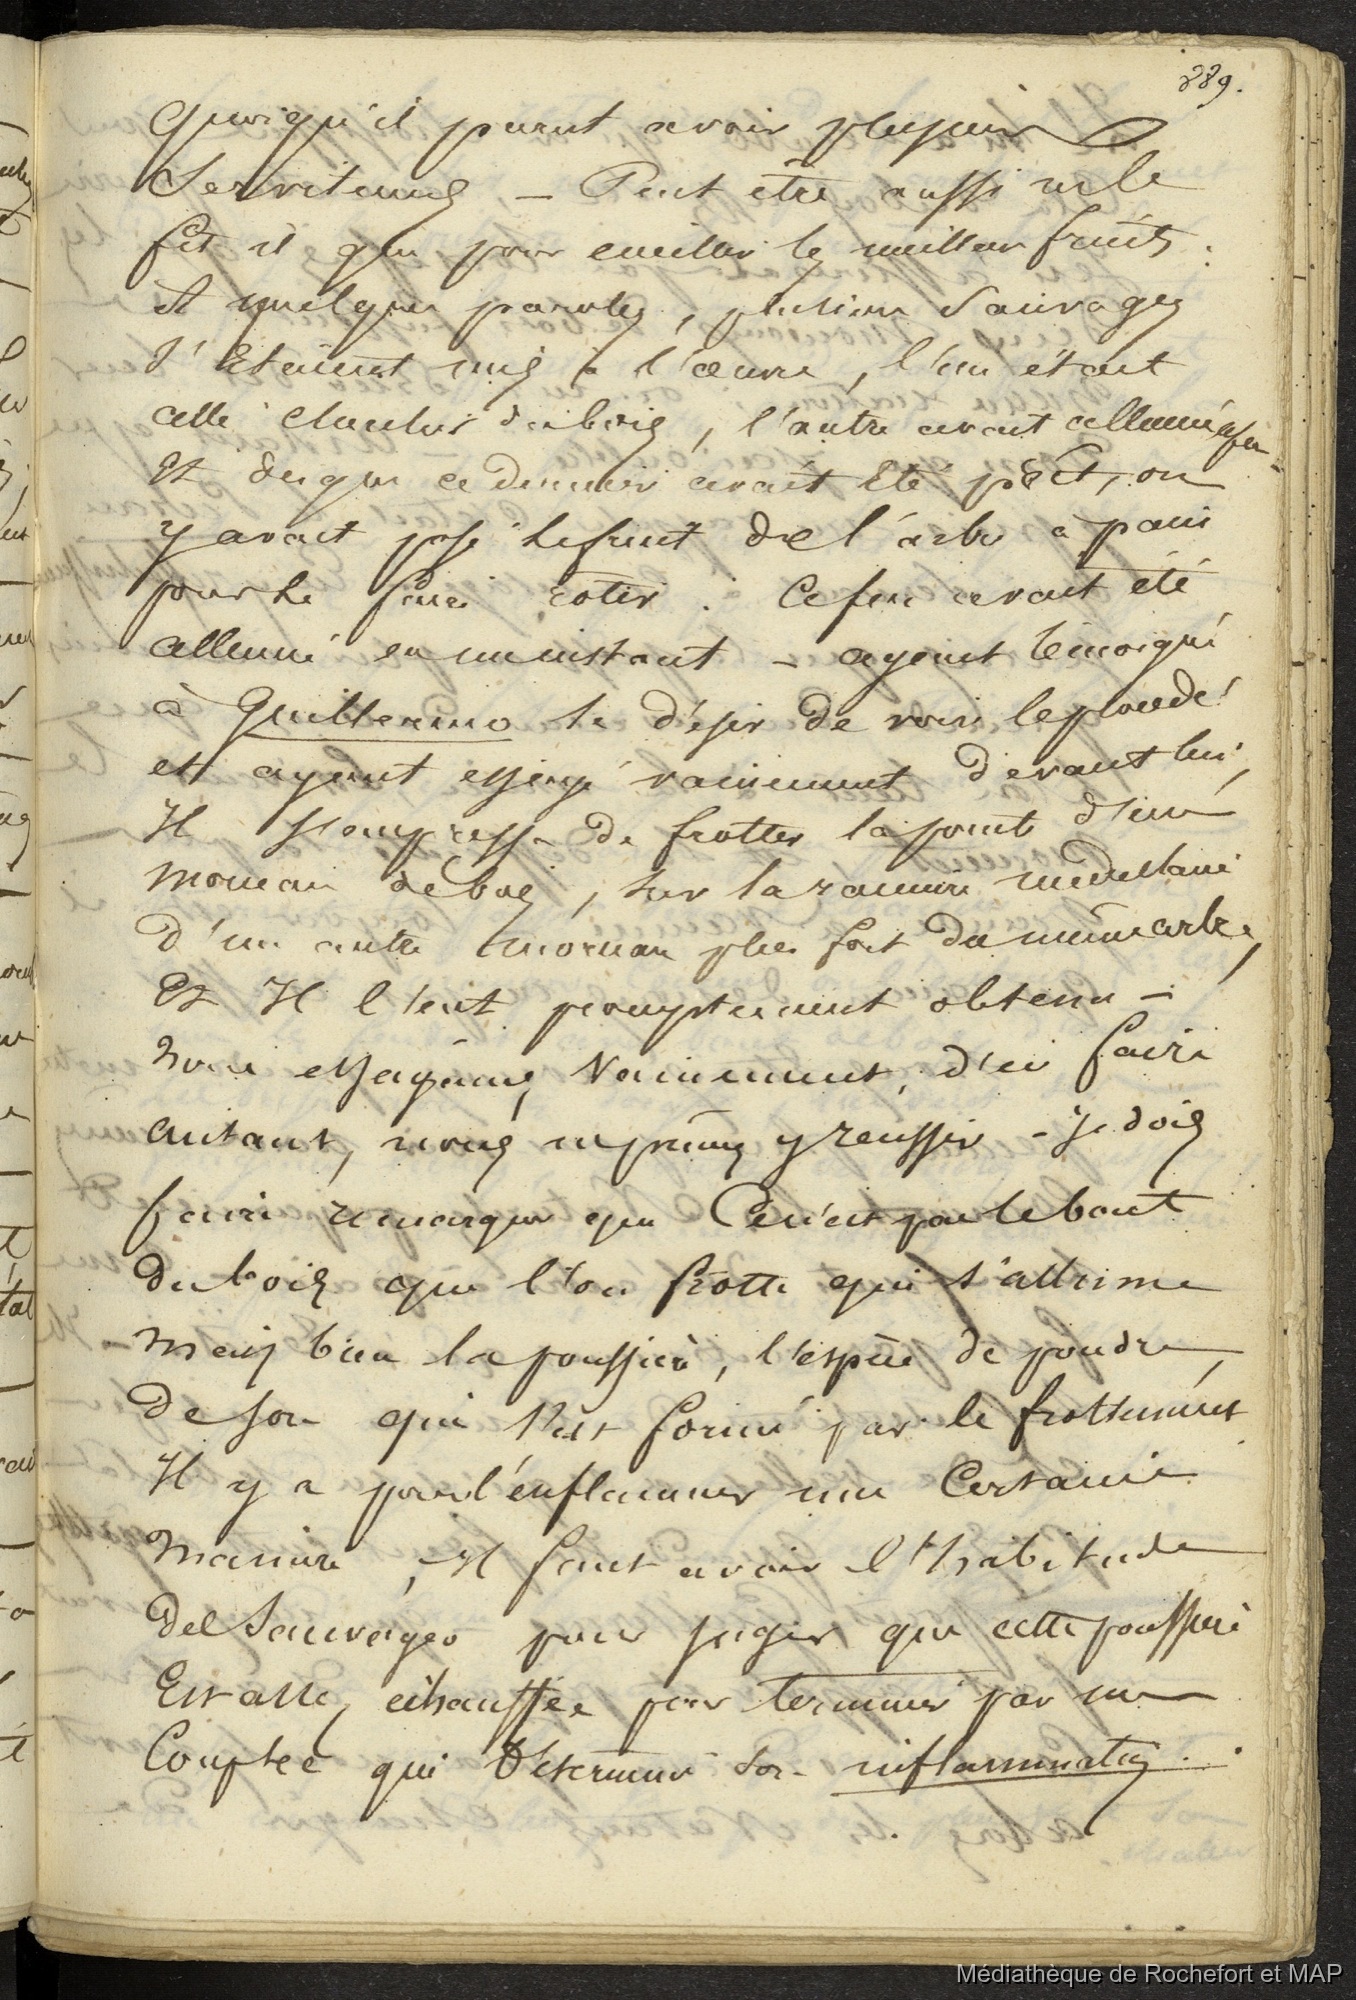 889.
quoiqu'il parut avoir plusieurs
Serviteurs – Peut être aussi ne le
fit il que pour cueillir les meilleurs fruits.
Et quelques paroles, plusieurs Sauvages
s'Etaient mis à l'œuvre, l'un était
allé chercher du bois, l'autre avait allumé
Et dès que ce dernier avait Eté prêt, on
y avait posé le fruit de l'arbre à pain
pour le faire rotir. Ce feu avait été
allumé en un instant – ayant témoigné
à Guillermo le désir de voir le procédé
et ayant essayé vainement devant lui,
Il s'empressa de frotter la pointe d'un
morceau de bois, sur la rainure
d'un autre morceau plus fort du même arbre,
Et Il l'eut promptement obtenu –
nous essayâmes, Vainement, d'en faire
autant, nous ne pûmes y reussir – Je dois
faire remarquer que Ce n'est pas le bout
du bois que l'on frotte qui s'allume
mais bien la poussière, l'espèce de poudre,
de son qui s'est formé par le frottement
Il y a pour l'enflammer une Certaine
manière, Il faut avoir l'habitude
des Sauvages pour juger que cette poussière
Est assez echauffée pour terminer par un
Coup sec qui détermine son inflammation.
Médiathèque de Rochefort et MAP